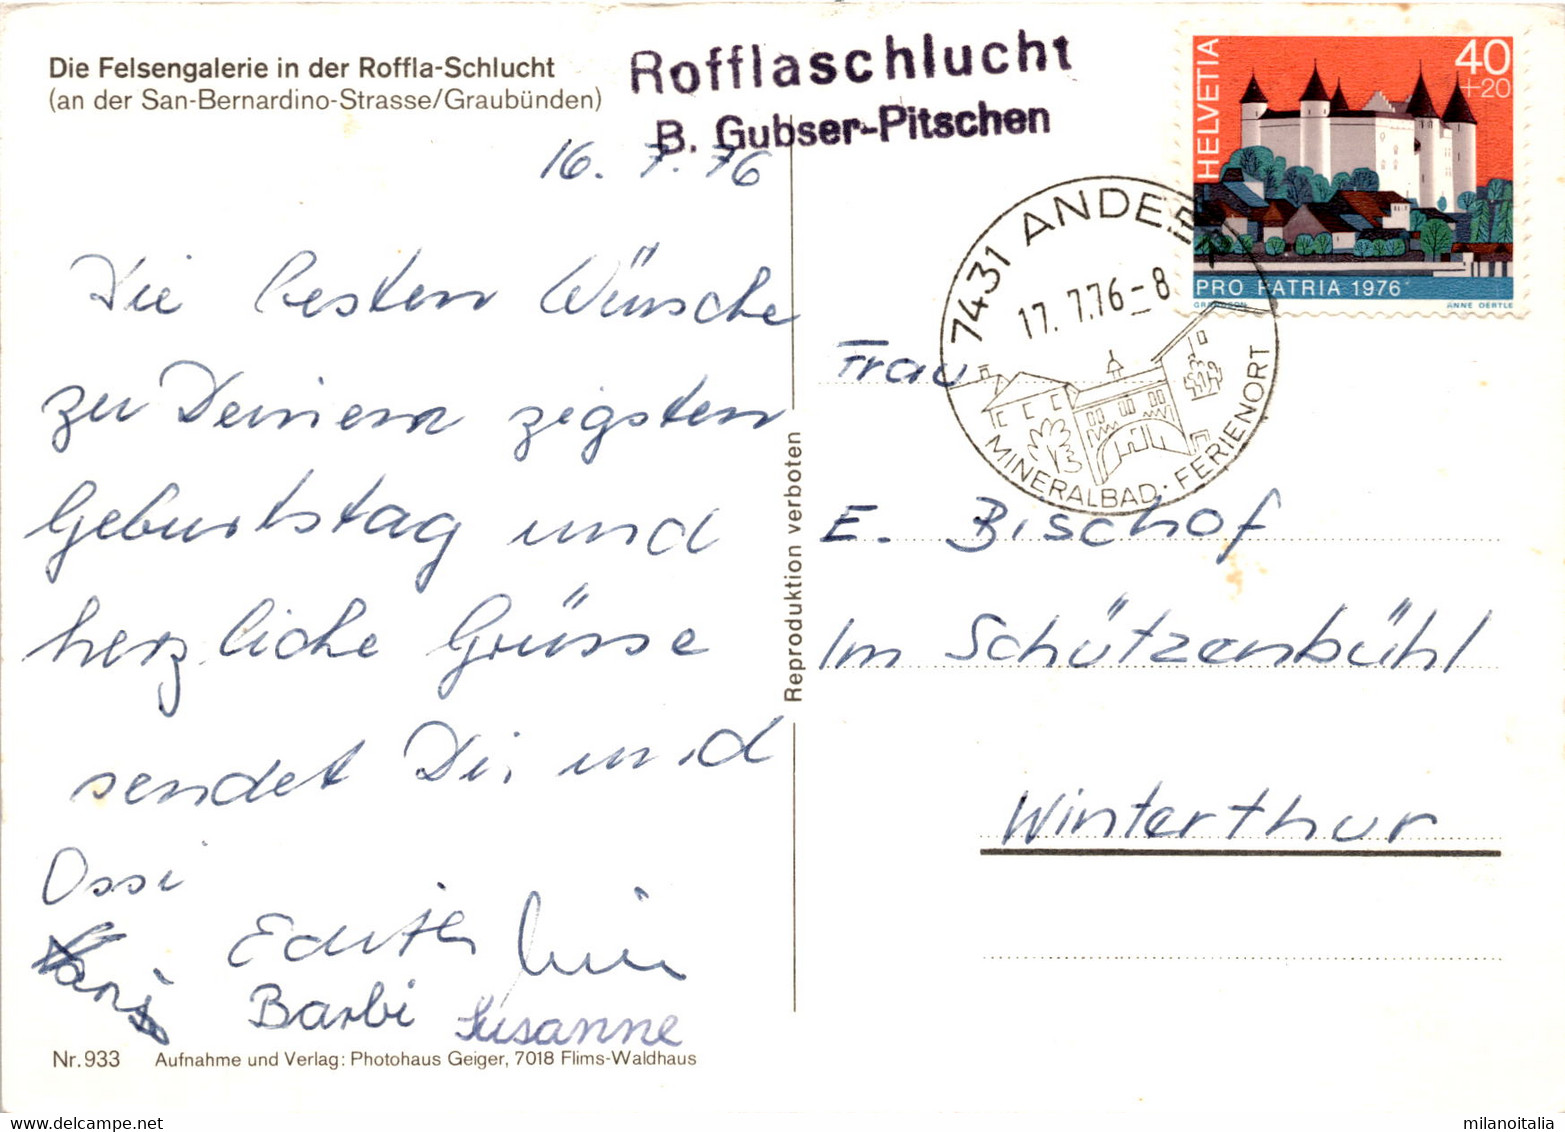 Die Felsengalerie in der Roffla-Schlucht
(an der San-Bernardino-Strasse/Graubünden)
Rofflaschlucht
B. Gubser-Pitschen
16. 7. 76
Die besten Wünsche
zu Deinem zigsten
Geburtstag und
herzliche Grüsse
sendet Dir und
Ossi
Edith
Barbi Susanne
Nr. 933 Aufnahme und Verlag: Photohaus Geiger, 7018 Flims-Waldhaus
Reproduktion verboten
HELVETIA
40
+20
PRO PATRIA 1976
GRANDSON ANNE OERTLE
7431 ANDEER
17. 7.76-8
MINERALBAD · FERIENORT
Frau
E. Bischof
Im Schützenbühl
Winterthur
milanoitalia